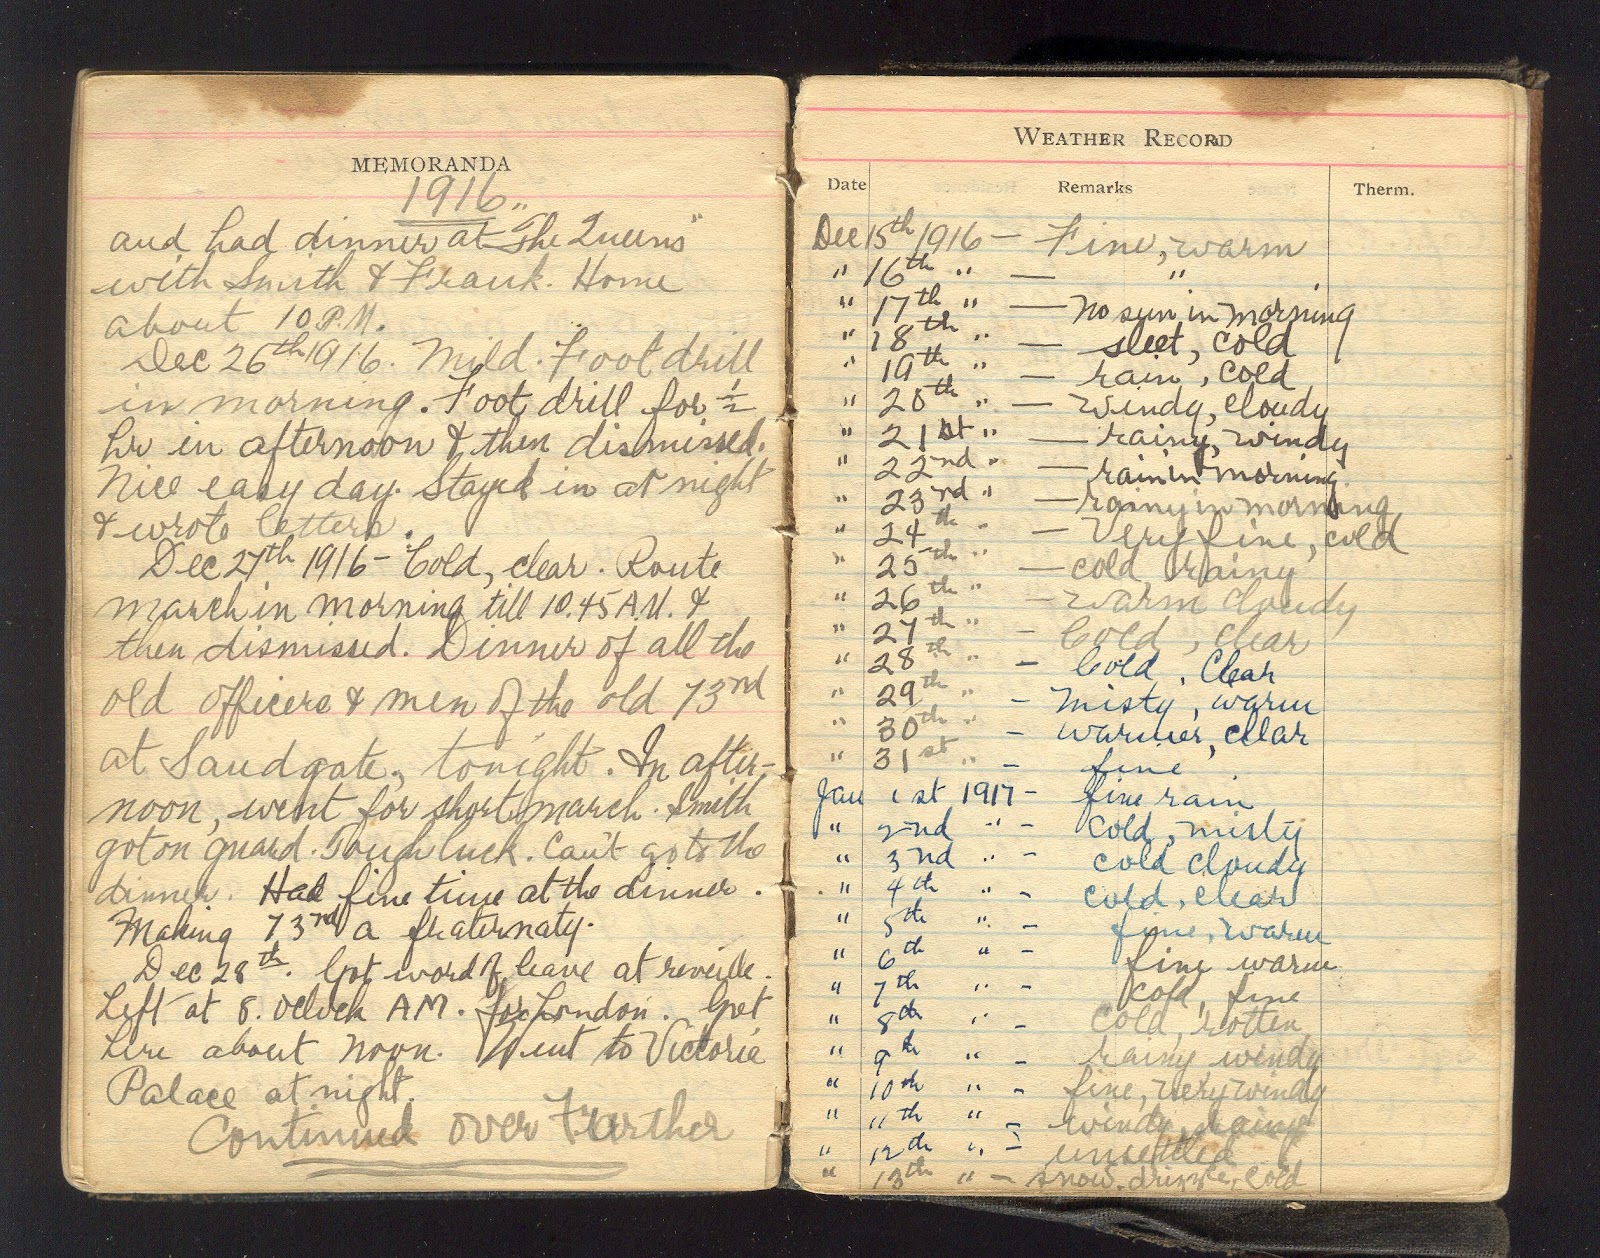 MEMORANDA
1916.
and had dinner at "The Queens"
with Smith & Frank. Home
about 10 P.M.
Dec 26th 1916. Mild. Foot drill
in morning. Foot drill for ½
hr in afternoon & then dismissed.
Nice easy day. Stayed in at night
& wrote letters.
Dec 27th 1916 - Cold, clear. Route
march in morning till 10.45 A.M. &
then dismissed. Dinner of all the
old officers & men of the old 73rd
at Sandgate, tonight. In after-
noon, went for short march. Smith
got on guard. Tough luck. Can't go to the
dinner. Had fine time at the dinner.
Making 73rd a fraternaty.
Dec 28th. Got word of leave at reveille.
Left at 8. oclock AM. for London. Got
here about noon. Went to Victoria
Palace at night.
Continued over Further
WEATHER RECORD
Date Remarks Therm.
Dec 15th 1916 - Fine, warm
" 16th " - "
" 17th " - no sun in morning
" 18th " - sleet, cold
" 19th " - rain, cold
" 20th " - windy, cloudy
" 21st " - rainy, windy
" 22nd " - rain in morning
" 23rd " - rainy in morning
" 24th " - Very fine, cold
" 25th " - cold rainy
" 26th " - warm cloudy
" 27th " - Cold, clear
" 28th " - Cold, Clear
" 29th " - misty, warm
" 30th " - warmer, clear
" 31st " - fine
Jan 1st 1917 - fine rain
" 2nd " - cold, misty
" 3nd " - cold cloudy
" 4th " - cold, clear
" 5th " - fine, warm
" 6th " - fine warm
" 7th " - cold, fine
" 8th " - cold, rotten
" 9th " - rainy windy
" 10th " - fine, very windy
" 11th " - windy, rainy
" 12th " - unsettled
" 13th " - snow, drizzle, cold